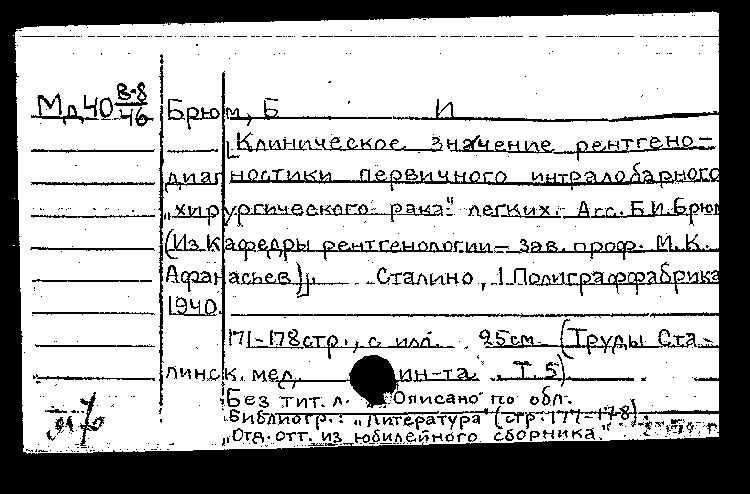 Мд40 В-8/46 Брюм, Б И
[Клиническое значение рентгено-
диагностики первичного интралобарного
„хирургического рака" легких. Асс. Б.И. Брюм
(Из Кафедры рентгенологии - зав. проф. М.К.
Афанасьев)], Сталино, 1 Полиграффабрика
1940.
171-178 стр., с илл. 25см (Труды Ста-
линск. мед. ин-та. Т. 5)
Без тит. л. Описано по обл.
Библиогр.: „Литература" (стр. 177-178).
„Отд. отт. из юбилейного сборника."